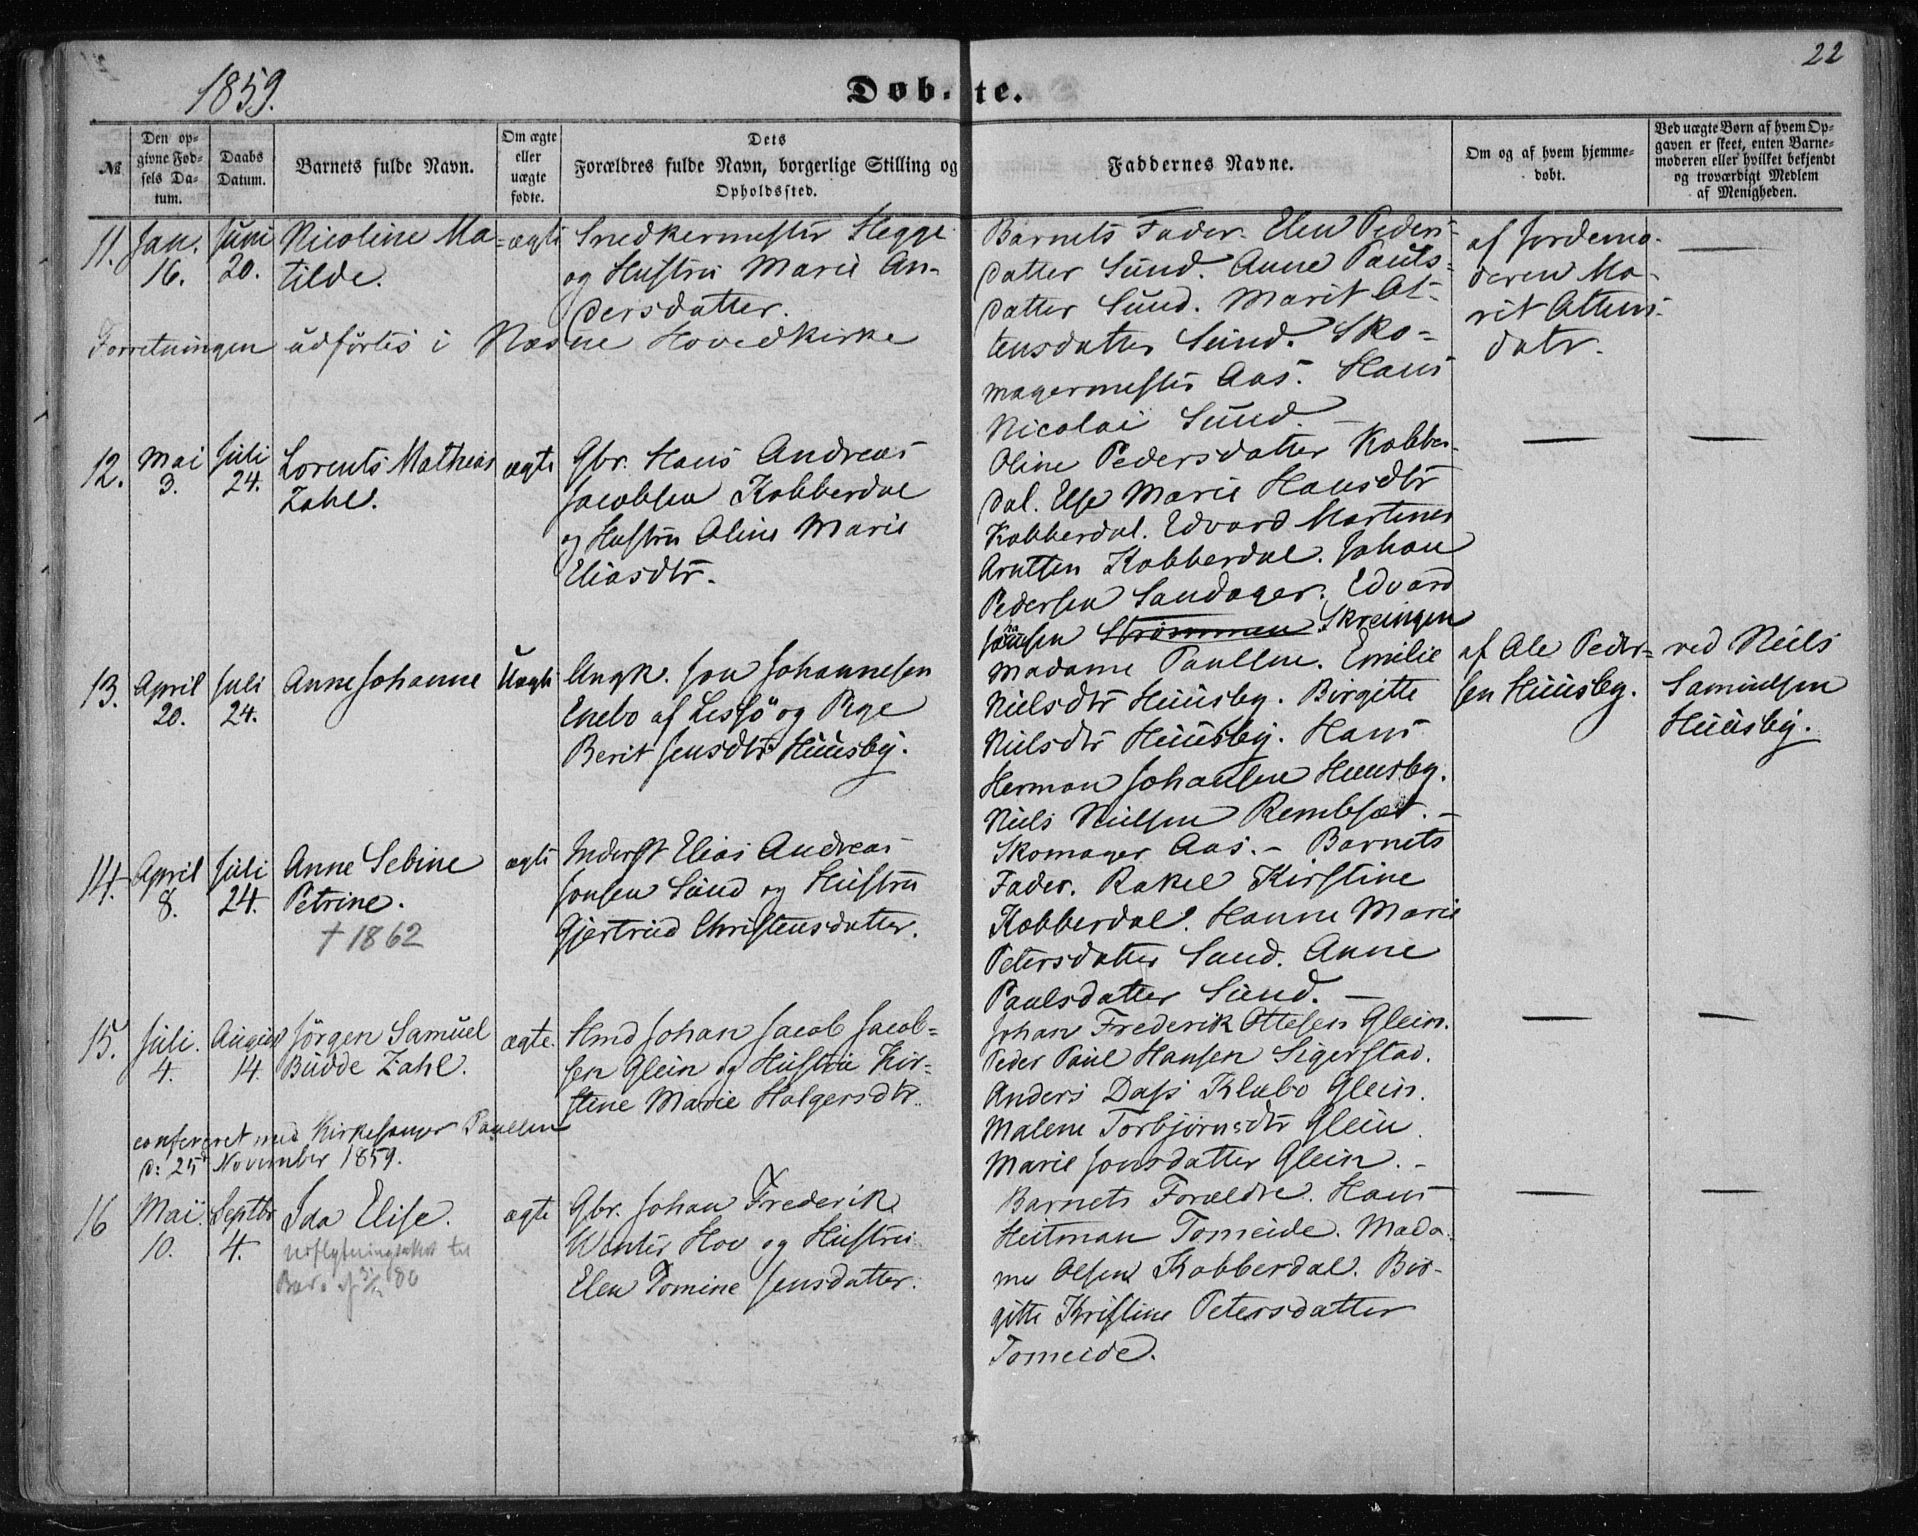 22
1859.
Døb- te.
№
Den op-
givne Fød-
sels Da-
tum.
Daabs
Datum.
Barnets fulde Navn.
Om ægte
eller
uægte
fødte.
Dets
Forældres fulde Navn, borgerlige Stilling og
Opholdssted.
Faddernes Navne.
Om og af hvem hjemme-
døbt.
Ved uægte Børn af hvem Op-
gaven er skeet, enten Barne-
moderen eller hvilket bekjendt
og troværdigt Medlem
af Menigheden.
11.
Jan.
16.
Juni
20.
Nicoline Ma-
tilde.
ægte
Snedkermester Hegge
og Hustru Marie An-
dersdatter.
Forretningen udførtes i Næsne Hovedkirke
Barnets Fader. Elen Peders-
datter Sund. Anne Pauls-
datter Sund. Marit At-
tensdatter Sund. Sko-
magermester Aas. Hans
Nicolai Sund. –
af Jordemo-
deren Ma-
rit Attens-
datr.
—
12.
Mai
3.
Juli
24.
Lorents Mathias
Zahl.
ægte
Gbr. Hans Andreas
Jacobsen Kobberdal
og Hustru Oline Marie
Eliasdtr.
Oline Pedersdatter Kobber-
dal. Else Marie Hansdtr
Kobberdal. Edvard Martines
Arntsen Kobberdal. Johan
Pedersen Sandager. Edvard
Jonsen Strømmen Skreingen
—
—
13.
April
20.
Juli
24.
Anne Johanne
Uægte
Ungk. Jon Johannesen
Enebo af Lessø og Pige
Berit Jensdtr Huusby.
Madame Paulsen. Emilie
Nielsdtr Huusby. Birgitte
Nielsdtr Huusby. Hans
Herman Johansen Huusby.
Niels Nielsen Rembsæt. –
af Ole Peder-
sen Huusby.
ved Niels
Samuelsen
Huusby.
14.
April
8.
Juli
24.
Anne Sebine
Petrine.
† 1862
ægte
Inderst Elias Andreas
Jonsen Sund og Hustru
Gjertrud Christensdatter.
Skomager Aas. – Barnets
Fader. Rakel Kirstine
Kobberdal. Hanne Marie
Petersdatter Sund. Anne
Paulsdatter Sund. –
15.
Juli.
4.
August
14.
Jørgen Samuel
Budde Zahl.
ægte.
Hmd Johan Jacob Jacob-
sen Glein og Hustru Kir-
stine Marie Holgersdtr.
conferet med Kirkesanger Paulsen
d: 25 November 1859.
Johan Frederik Ottesen Glein.
Peder Paul Hansen Sigerstad.
Anders Dass Klæbo Glein.
Malene Torbjørnsdtr Glein.
Marie Jonsdatter Glein. –
—
—
16
Mai.
10.
Septbr
4.
Ida Elise.
Udflytningsattest til
80
ægte
Gbr. Johan Frederik
Winter Hov og Hustru
Elen Tomine Jensdatter.
Barnets Forældre. Hans
Heitman Tomeide. Mada-
me Olsen Kobberdal. Bir-
gitte Kristine Petersdatter
Tomeide.
—
—